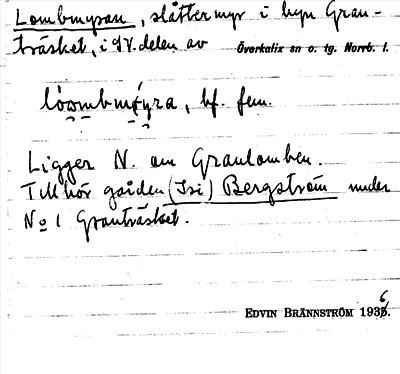 Lombmyran, slåttermyr i byn Gran-
träsket, i NV. delen av Överkalix sn o. tg. Norrb. l.
lóombmýra, bf. fem.
Ligger N. om Granlomben.
Tillhör gården (Isi) Bergström under
No 1 Granträsket.
EDVIN BRÄNNSTRÖM 1936.